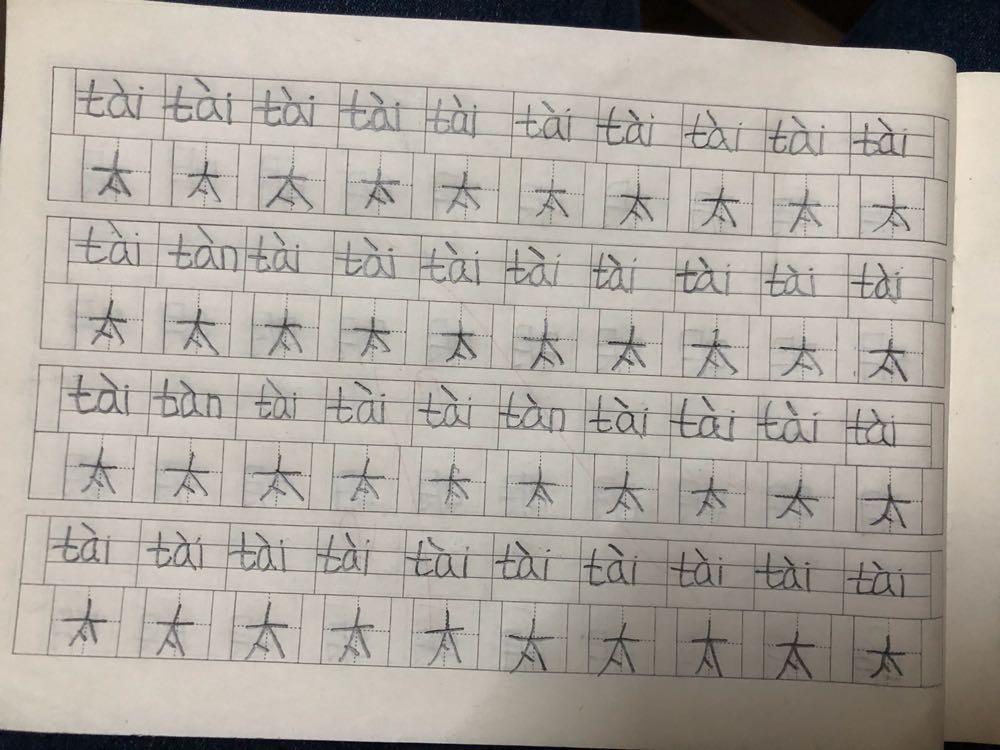 tài tài tài tài tài tài tài tài tài tài
太 太 太 太 太 太 太 太 太 太
tài tàn tài tài tài tài tài tài tài tài
太 太 太 太 太 太 太 太 太 太
tài tàn tài tài tài tàn tài tài tài tài
太 太 太 太 太 太 太 太 太 太
tài tài tài tài tài tài tài tài tài tài
太 太 太 太 太 太 太 太 太 太